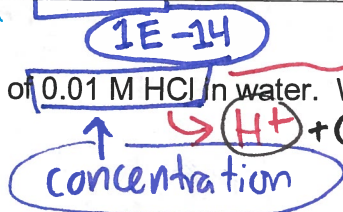 1E-14
of 0.01 M HCl in water.
H+ +
concentration